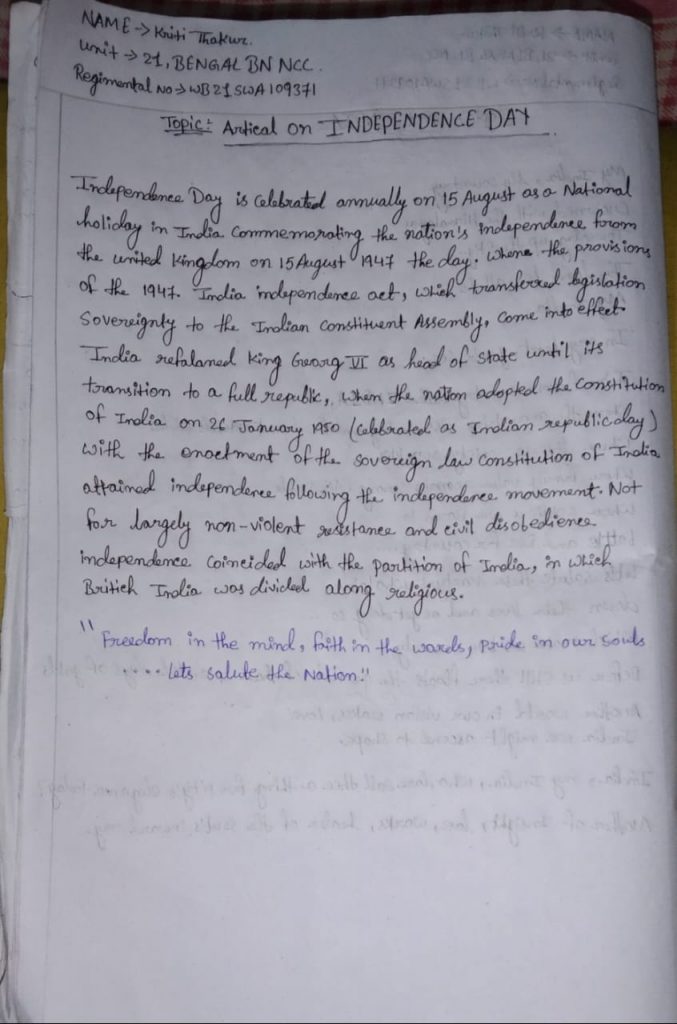 NAME → Kriti Thakur.
Unit → 21, BENGAL BN NCC.
Regimental No → WB21SWA109371
Topic: Artical on INDEPENDENCE DAY
Independence Day is Celebrated annually on 15 August as a National
holiday in India Commemorating the nation's independence from
the united Kingdom on 15 August 1947 the day. Where the provisions
of the 1947. India independence act, which transferred legislation
Sovereignty to the Indian Constituent Assembly, Come into effect.
India refalaned King Georg VI as head of State until its
transition to a full republic, when the nation adopted the Constitution
of India on 26 January 1950 (Celebrated as Indian republic day)
with the enactment of the sovereign law Constitution of India
attained independence following the independence movement. Not
for largely non-violent resistance and civil disobedience
independence Coincided with the partition of India, in which
Britich India was divided along religious.
"Freedom in the mind, faith in the words, pride in our souls
.... Lets salute the Nation."